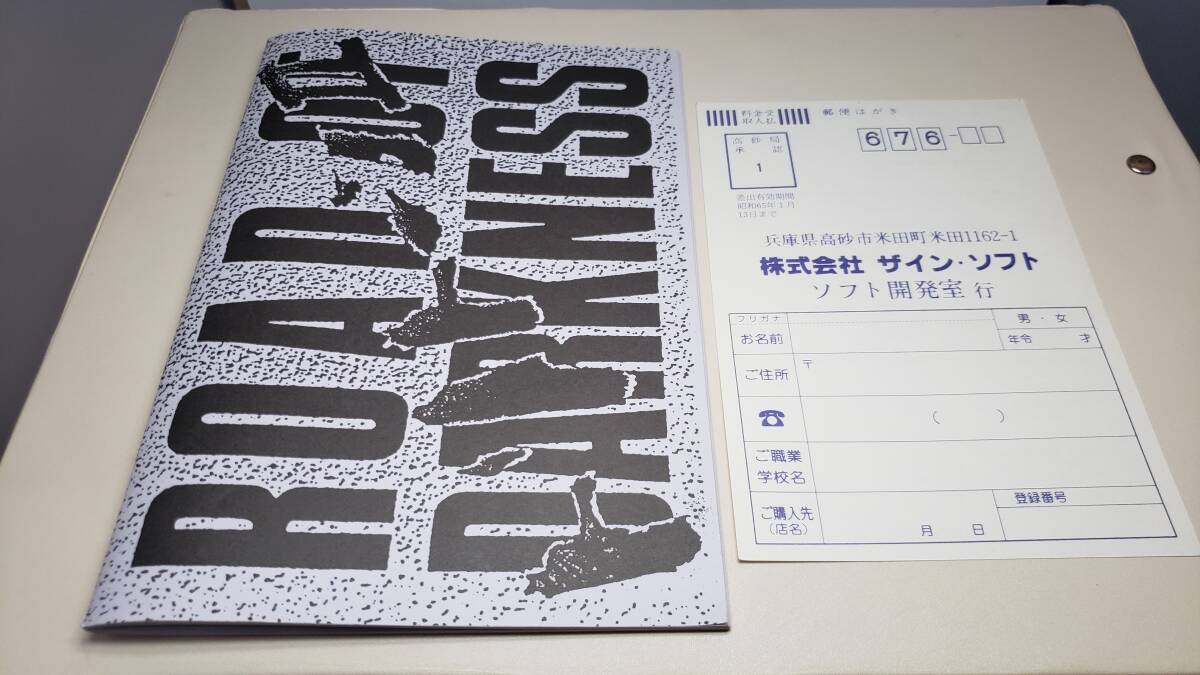 ROAD OF
DARKNESS
料金受
取人払
郵便はがき
高砂局
承認
1
676-
差出有効期間
昭和65年1月
13日まで
兵庫県高砂市米田町米田1162-1
株式会社 ザイン・ソフト
ソフト開発室 行
フリガナ
男・女
お名前
年令 才
ご住所
〒
☎
( )
ご職業
学校名
ご購入先
(店名)
月 日
登録番号